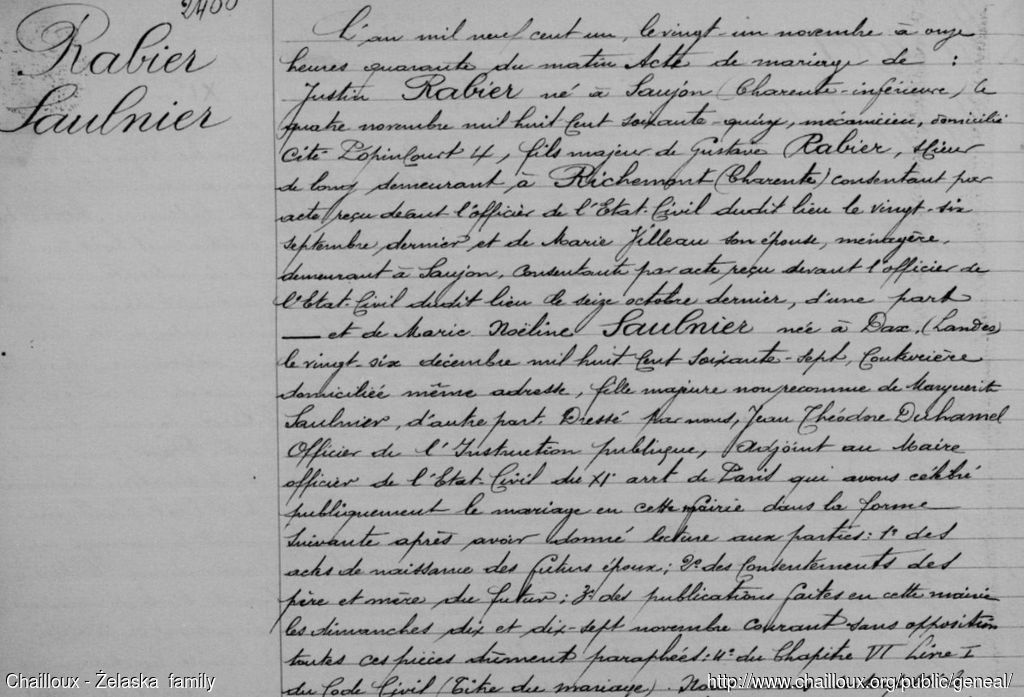 2400
Rabier
Saulnier
L'an mil neuf cent un, le vingt-un novembre à onze
heures quarante du matin Acte de mariage de :
Justin Rabier né à Saujon (Charente-inférieure) le
quatre novembre mil huit cent soixante-quinze, mécanicien, domicilié
Cité Popincourt 4, fils majeur de Gustave Rabier, scieur
de long demeurant à Richemont (Charente) consentant par
acte reçu devant l'officier de l'Etat-Civil dudit lieu le vingt-six
septembre dernier et de Marie Filleau son épouse, ménagère,
demeurant à Saujon, consentante par acte reçu devant l'officier de
l'Etat-Civil dudit lieu le seize octobre dernier, d'une part
— et de Marie Noëline Saulnier née à Dax, (Landes)
le vingt-six décembre mil huit cent soixante-sept, couturière
domiciliée même adresse, fille majeure non reconnue de Marguerite
Saulnier, d'autre part. Dressé par nous, Jean Théodore Duhamel
Officier de l'Instruction publique, adjoint au Maire
officier de l'Etat-Civil du XIe arrt de Paris qui avons célébré
publiquement le mariage en cette mairie dans la forme
suivante après avoir donné lecture aux parties: 1o des
actes de naissance des futurs époux; 2o des consentements des
père et mère du futur; 3o des publications faites en cette mairie
les dimanches dix et dix-sept novembre courant sans opposition
toutes ces pièces dûment paraphées: 4o du Chapitre VI Livre I
du Code Civil (Titre du mariage).
Chailloux - Żelaska family
http://www.chailloux.org/public/geneal/